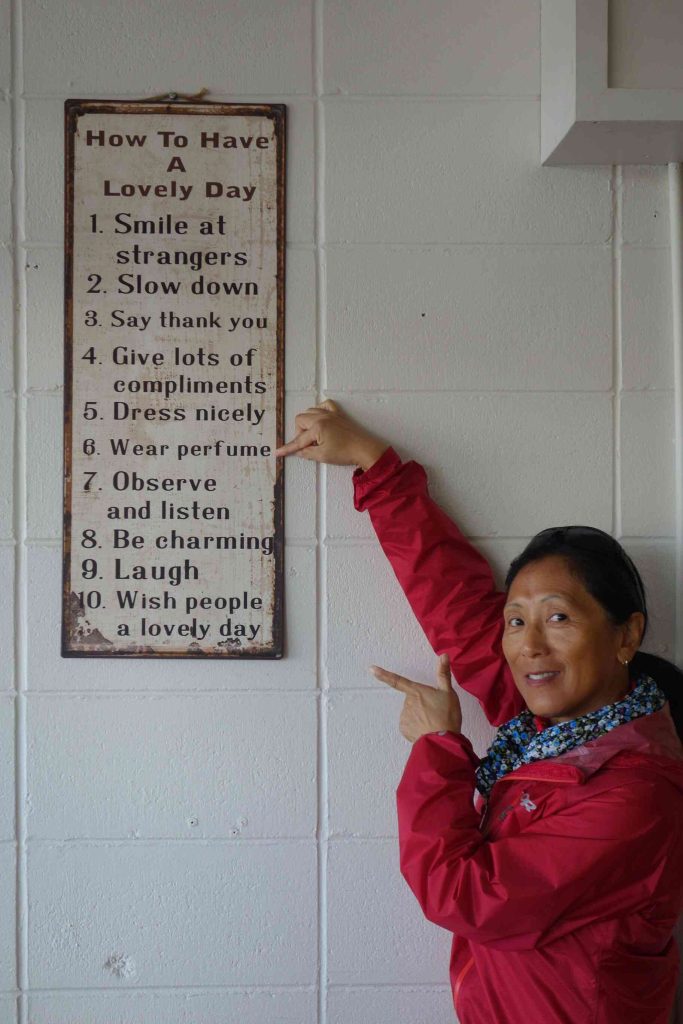 How To Have
A
Lovely Day
1. Smile at
strangers
2. Slow down
3. Say thank you
4. Give lots of
compliments
5. Dress nicely
6. Wear perfume
7. Observe
and listen
8. Be charming
9. Laugh
10. Wish people
a lovely day